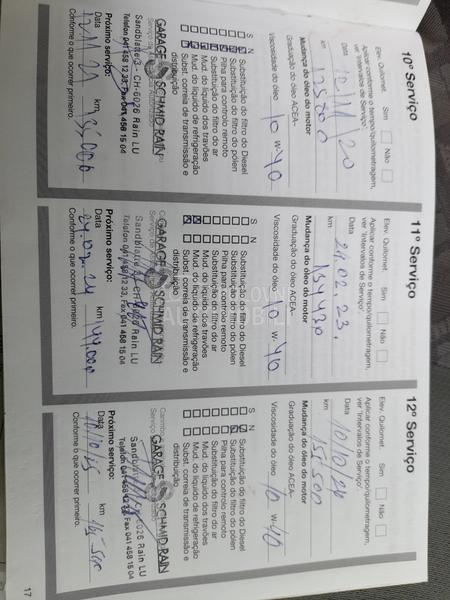 10º Serviço
Elev. Quilomet. Sim Não
Aplicar conforme o tempo/quilometragem,
ver 'Intervalos de Serviço'
Data 12/11/20
km
Mudança do óleo do motor
Graduação do óleo ACEA-
Viscosidade do óleo 10 W- 40
S N
Substituição do filtro do Diesel
Substituição do filtro do pólen
Pilha para controlo remoto
Substituição do filtro do ar
Mud. do líquido dos travões
Mud. do líquido de refrigeração
Subst. correia de transmissão e
distribuição
GARAGE SCHMID RAIN
Sandblatte 3 - CH-6026 Rain LU
Telefon 041 458 12 33, Fax 041 458 15 04
Próximo serviço:
Data 12.11.21 km
Conforme o que ocorrer primeiro.
11º Serviço
Elev. Quilomet. Sim Não
Aplicar conforme o tempo/quilometragem,
ver 'Intervalos de Serviço'
Data 24.02.23.
km
Mudança do óleo do motor
Graduação do óleo ACEA-
Viscosidade do óleo 10 W- 40
S N
Substituição do filtro do Diesel
Substituição do filtro do pólen
Pilha para controlo remoto
Substituição do filtro do ar
Mud. do líquido dos travões
Mud. do líquido de refrigeração
Subst. correia de transmissão e
distribuição
GARAGE SCHMID RAIN
Rain LU
Fax 041 458 15 04
Próximo serviço:
Data 24.02.24 km
Conforme o que ocorrer primeiro.
12º Serviço
Elev. Quilomet. Sim Não
Aplicar conforme o tempo/quilometragem,
ver 'Intervalos de Serviço'
Data 10/10/24
km
Mudança do óleo do motor
Graduação do óleo ACEA-
Viscosidade do óleo 10 W- 40
S N
Substituição do filtro do Diesel
Substituição do filtro do pólen
Pilha para controlo remoto
Substituição do filtro do ar
Mud. do líquido dos travões
Mud. do líquido de refrigeração
Subst. correia de transmissão e
distribuição
GARAGE SCHMID RAIN
6026 Rain LU
Fax 041 458 15 04
Próximo serviço:
Data 10/10/25 km
Conforme o que ocorrer primeiro.
17